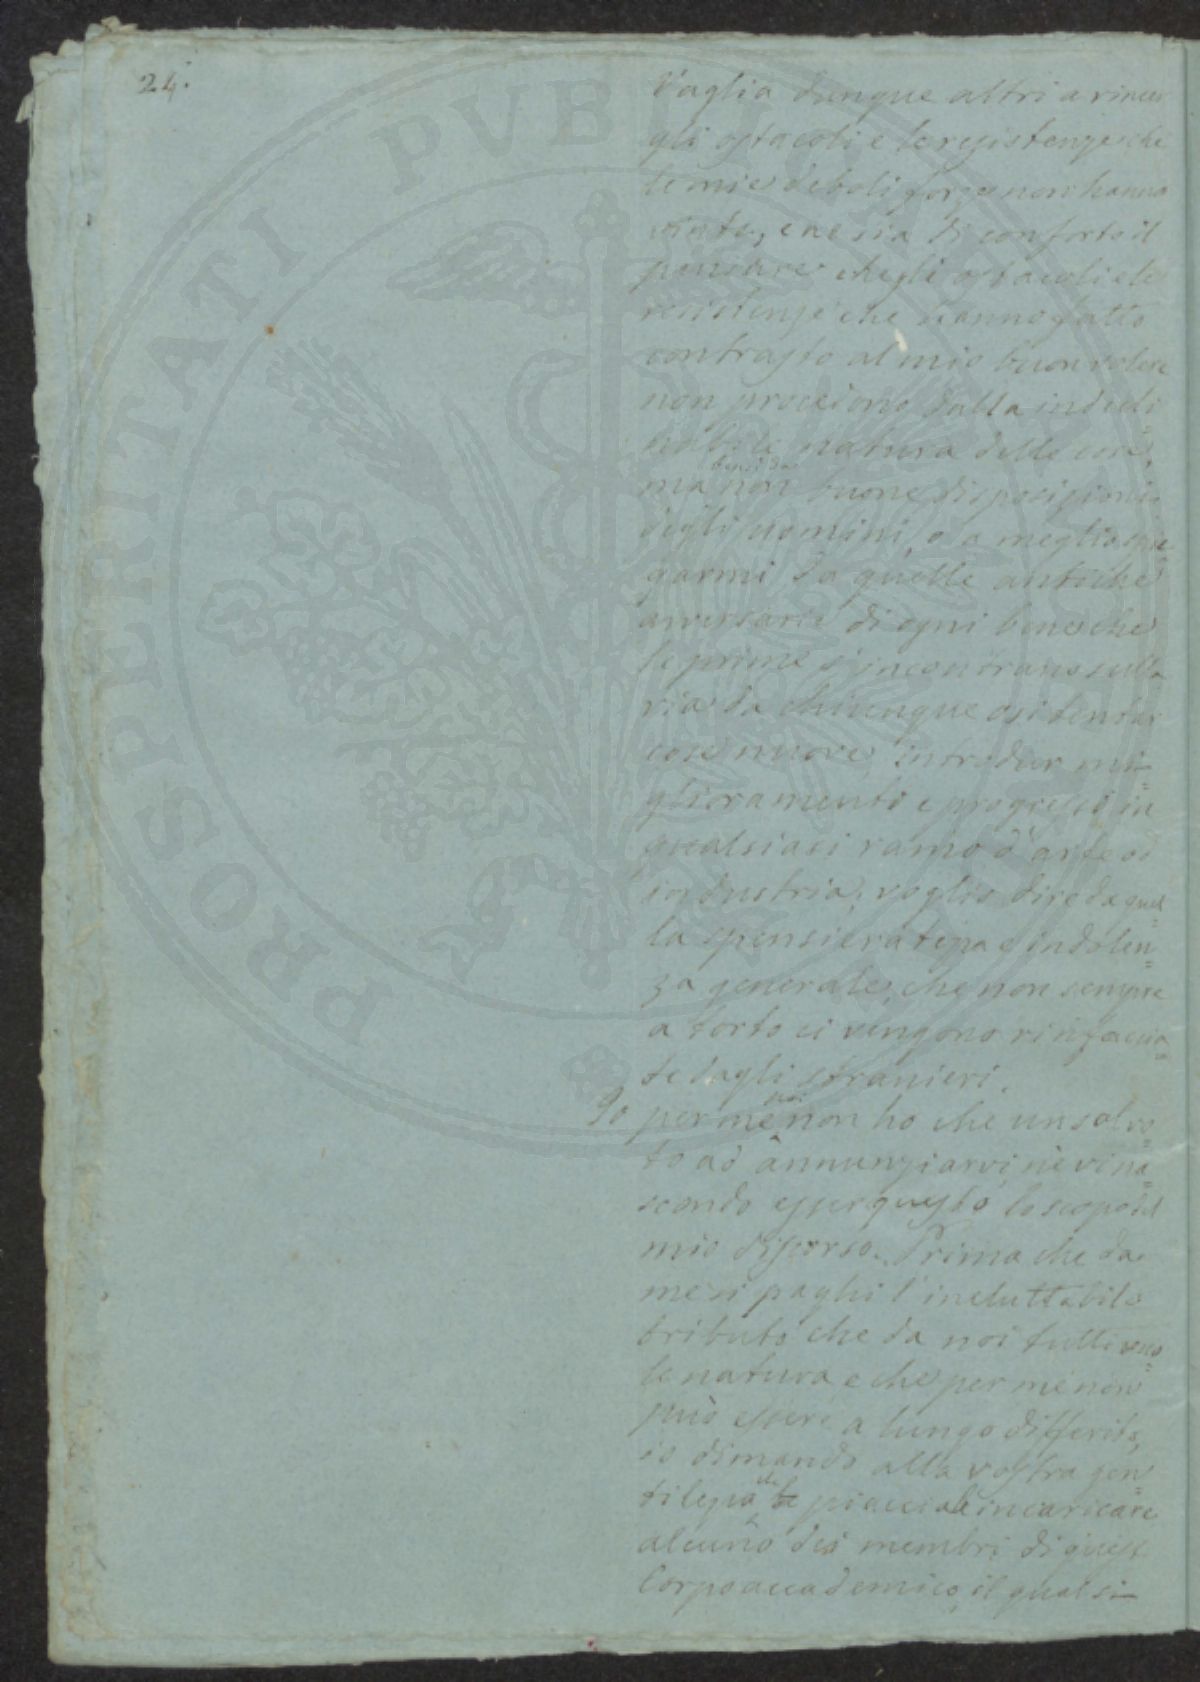 24.
Vaglia dunque altri a vincer
gli ostacoli e le resistenze che
le mie deboli forze non hanno
vinto, e ne sia di conforto il
pensare che gli ostacoli e le
resistenze che hanno fatto
contrasto al mio buon volere
non procedono dalla indecli
nabile natura delle cose,
ma non buone disposizioni
degli uomini, o a meglio spie
garmi da quelle antiche
avversarie di ogni bene che
le prime s'incontrano sulla
via da chiunque osi tentar
cose nuove, introdur mi=
glioramenti e progressi in
qualsiasi ramo d'arte od
industria; voglio dire da quel=
la spensieratezza e indolen=
za generale, che non sempre
a torto ci vengono rinfaccia=
te dagli stranieri.
Io per me non ho che un sol vo=
to ad annunziarvi, nè vi na=
scondo esser questo lo scopo del
mio discorso. Prima che da
me si paghi l'ineluttabile
tributo che da noi tutti vuo=
le natura e che per me non
può essere a lungo differito,
io dimando alla vostra gen=
tilezza che piacciale incaricare
alcuno dei membri di quest
Corpo accademico, il qual si=
PROSPERITATI PVBLICAE